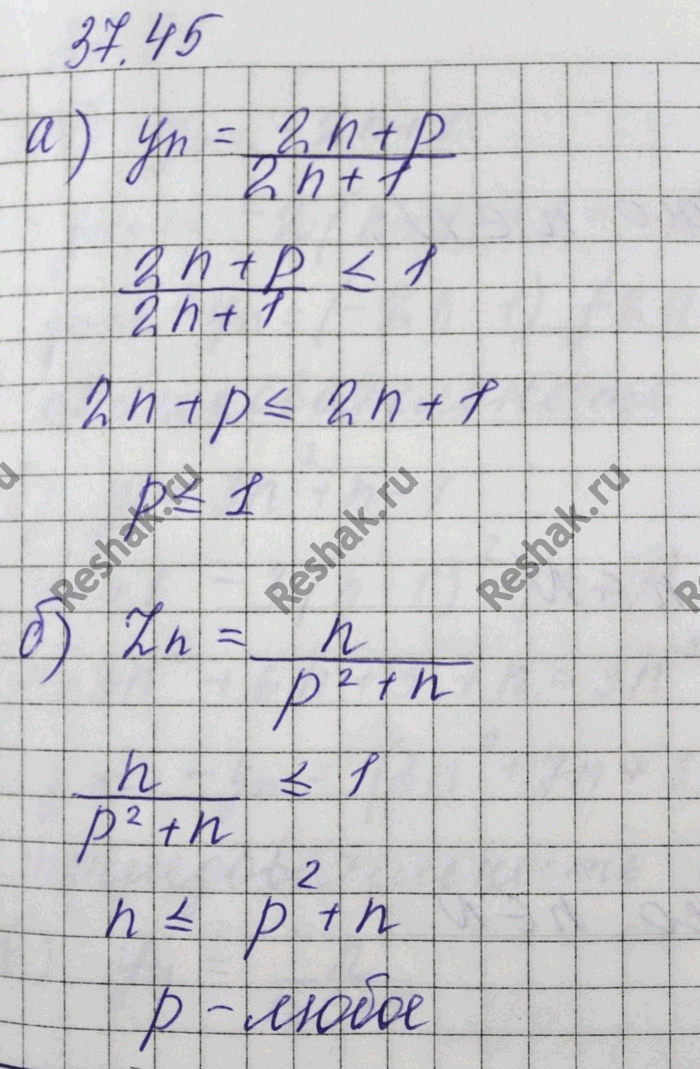 37.45
а) yn = 2n+p / 2n+1
2n+p / 2n+1 ≤ 1
2n+p ≤ 2n+1
p ≤ 1
Reshak.ru Reshak.ru Reshak.ru
б) Zn = n / p²+n
n / p²+n ≤ 1
n ≤ p²+n
p – любое